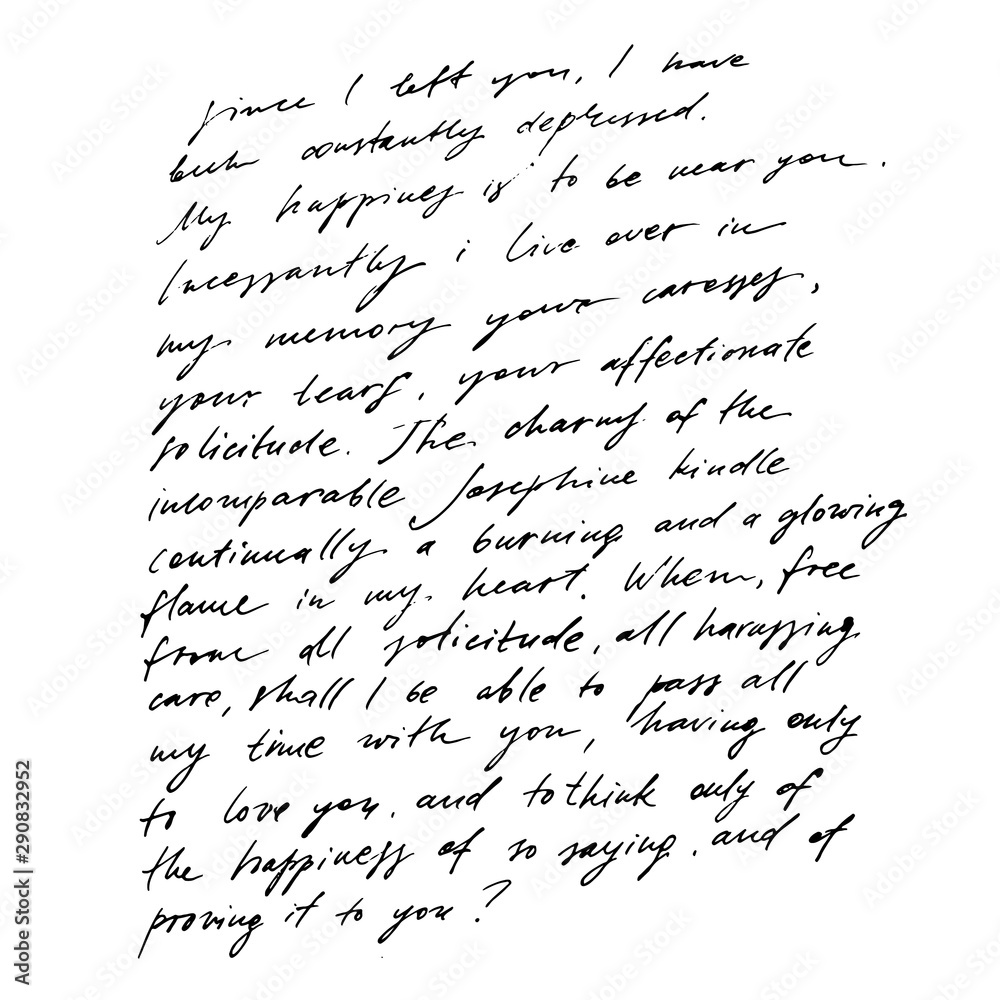 Since I left you, I have
been constantly depressed.
My happines is to be near you.
Incessantly i live over in
my memory your caresses,
your tears, your affectionate
solicitude. The charms of the
incomparable Josephine kindle
continually a burning and a glowing
flame in my heart. When, free
from all solicitude, all harassing
care, shall I be able to pass all
my time with you, having only
to love you, and to think only of
the happiness of so saying, and of
proving it to you?
Adobe Stock | #290832952